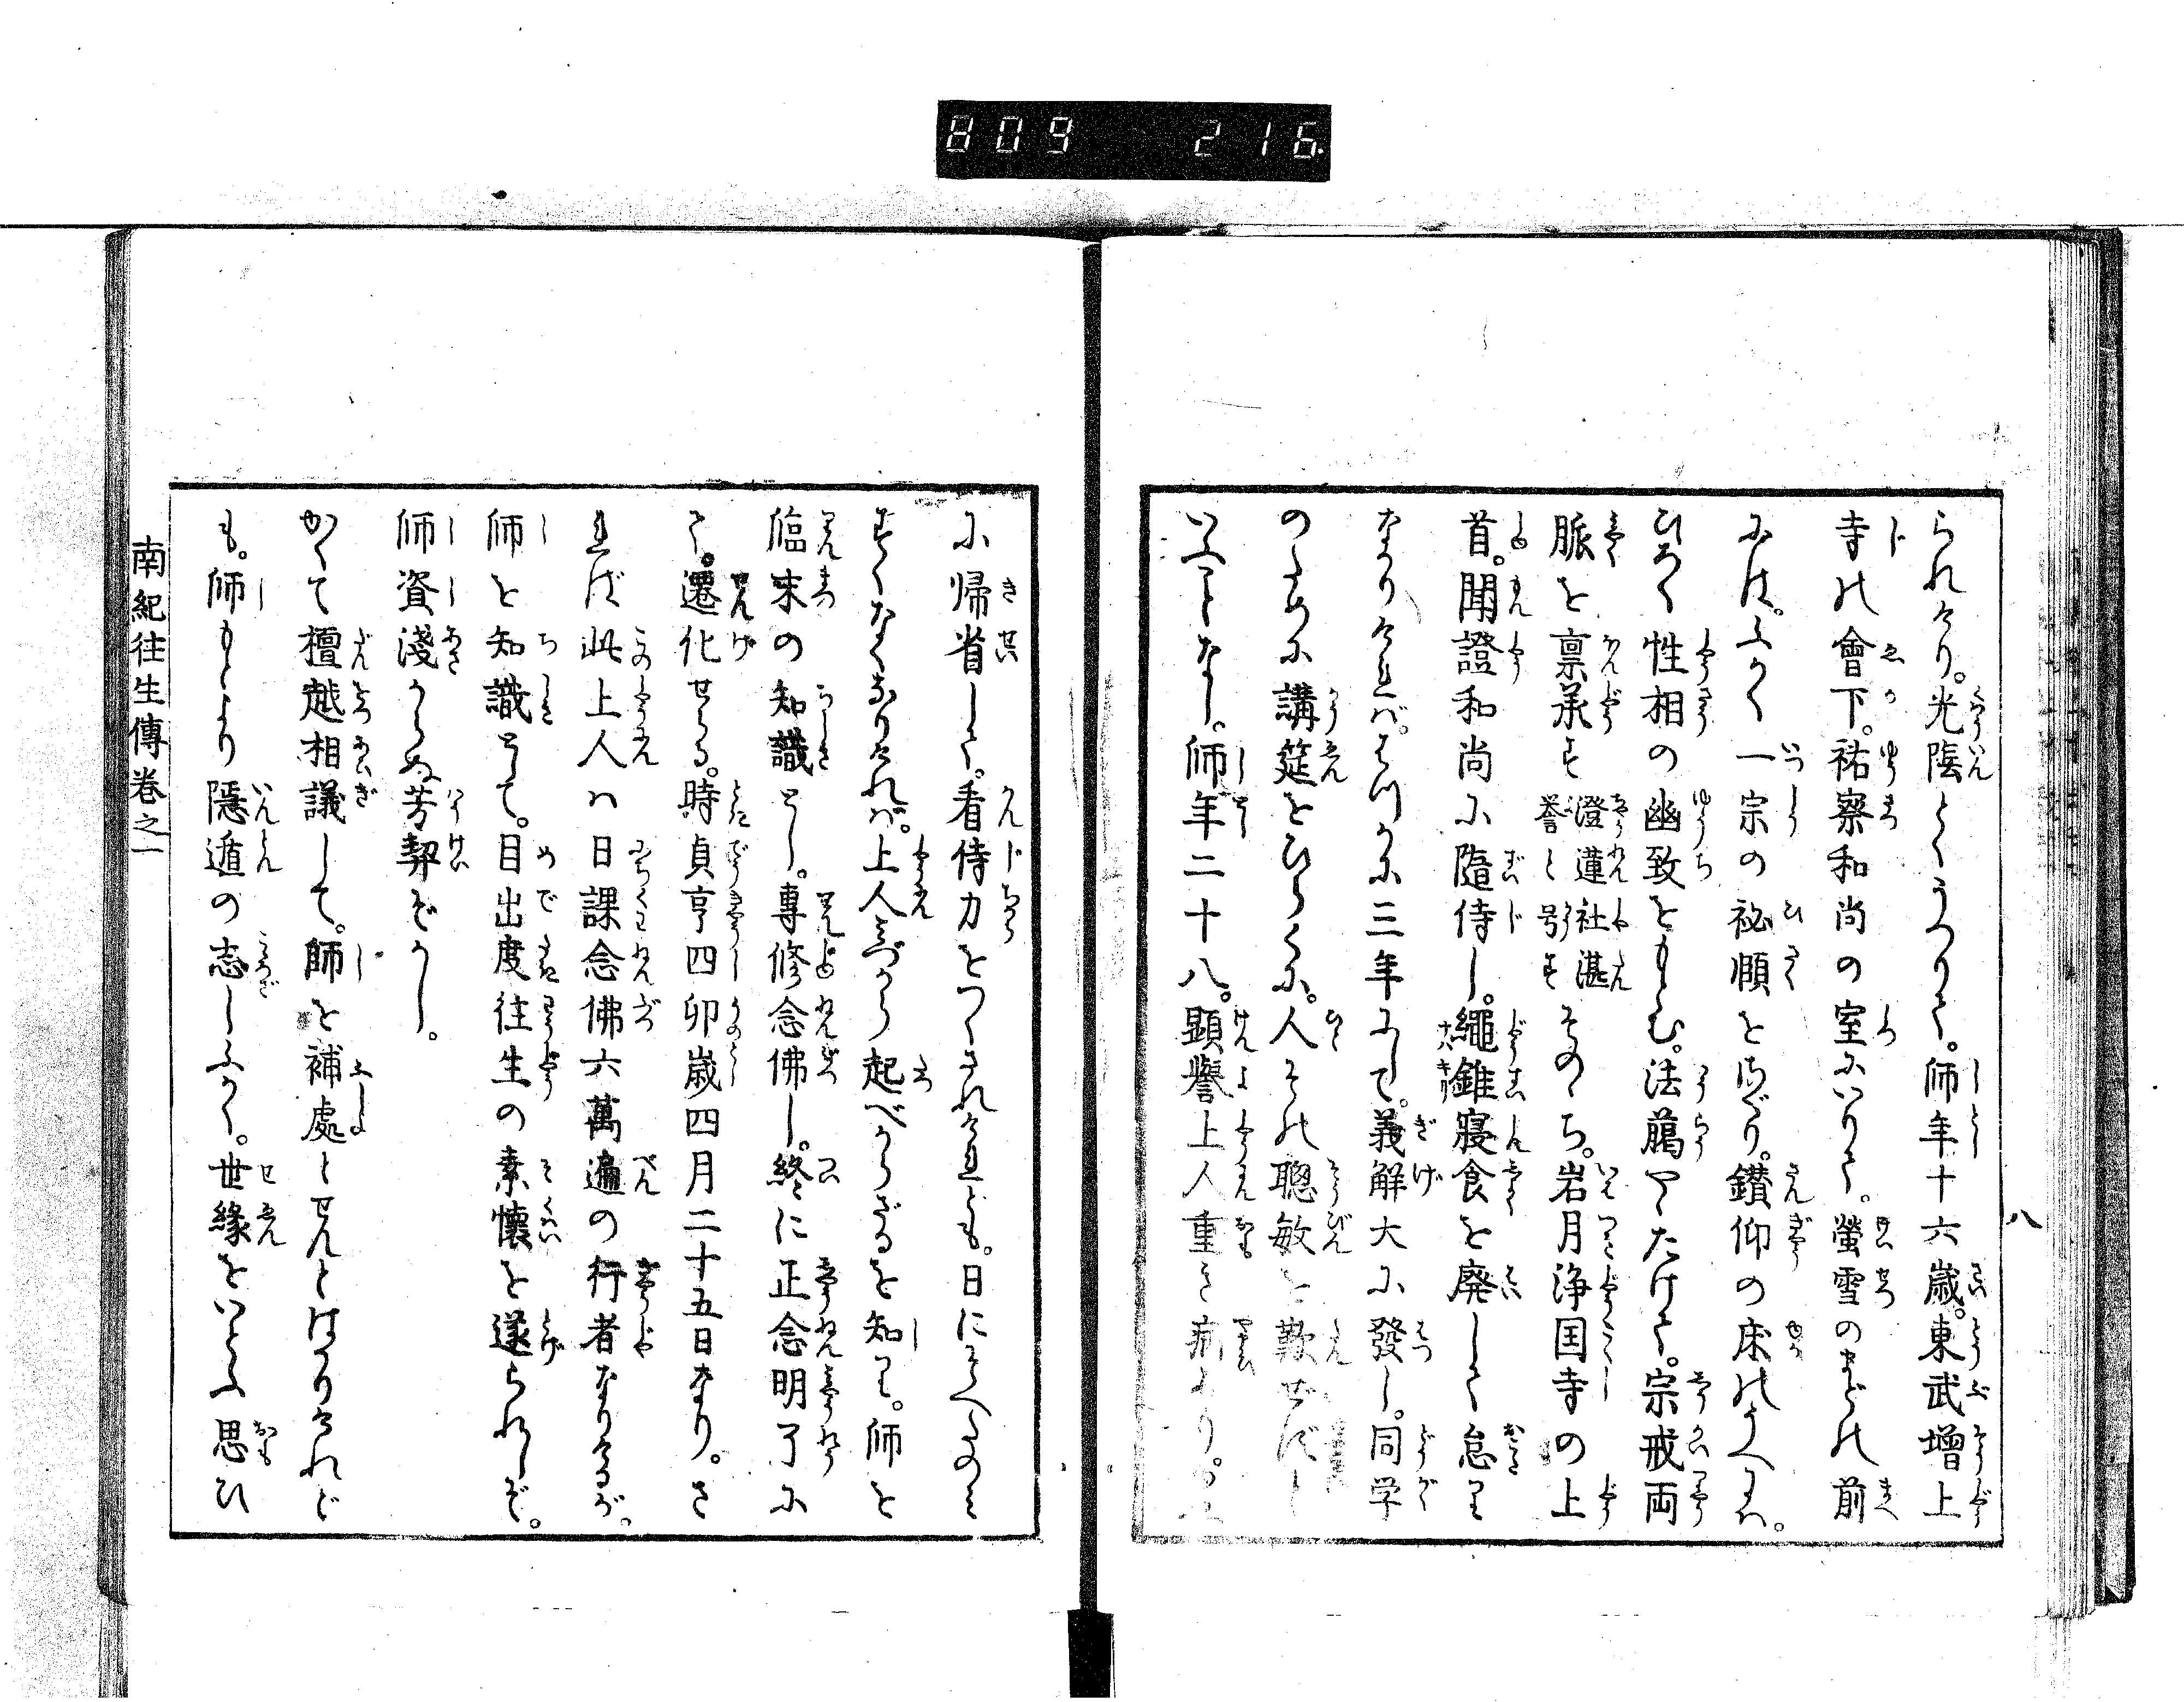 809 216
八
られけり。光陰とくうつりて。師年十六歳。東武増上
寺の會下。祐察和尚の室にいりて。螢雪のまどの前
には。ふかく一宗の祕賾をさぐり。鑚仰の床のうへには。
ひろく性相の幽致をもとむ。法﨟やゝたけて。宗戒両
脈を禀承す澄蓮社湛誉と号すそのゝち。岩月浄国寺の上
首。聞證和尚に隨侍し。繩錐寝食を廃して怠り
なかりければ。はつかに三年にして。義解大に發し。同学
のために講筵をひらくに。人その聰敏を歎ぜずと
いふことなし。師年二十八。顕譽上人重き病
に帰省して。看侍力をつくされけれども。日にそへたのみ
すくなくなりければ。上人みづから起べからざるを知り。師を
臨末の知識とし。專修念佛し。終に正念明了に
て。遷化せる。時貞亨四卯歳四月二十五日なり。さ
れば此上人ハ日課念佛六萬遍の行者なりけるが。
師を知識とて。目出度往生の素懐を遂られしぞ。
師資淺からぬ芳契ぞかし。
かくて檀越相議して。師を補處とせんとはかりけれど
も。師もとより隠遁の志しふかく。世縁をいとふ思ひ
南紀往生傳巻之一